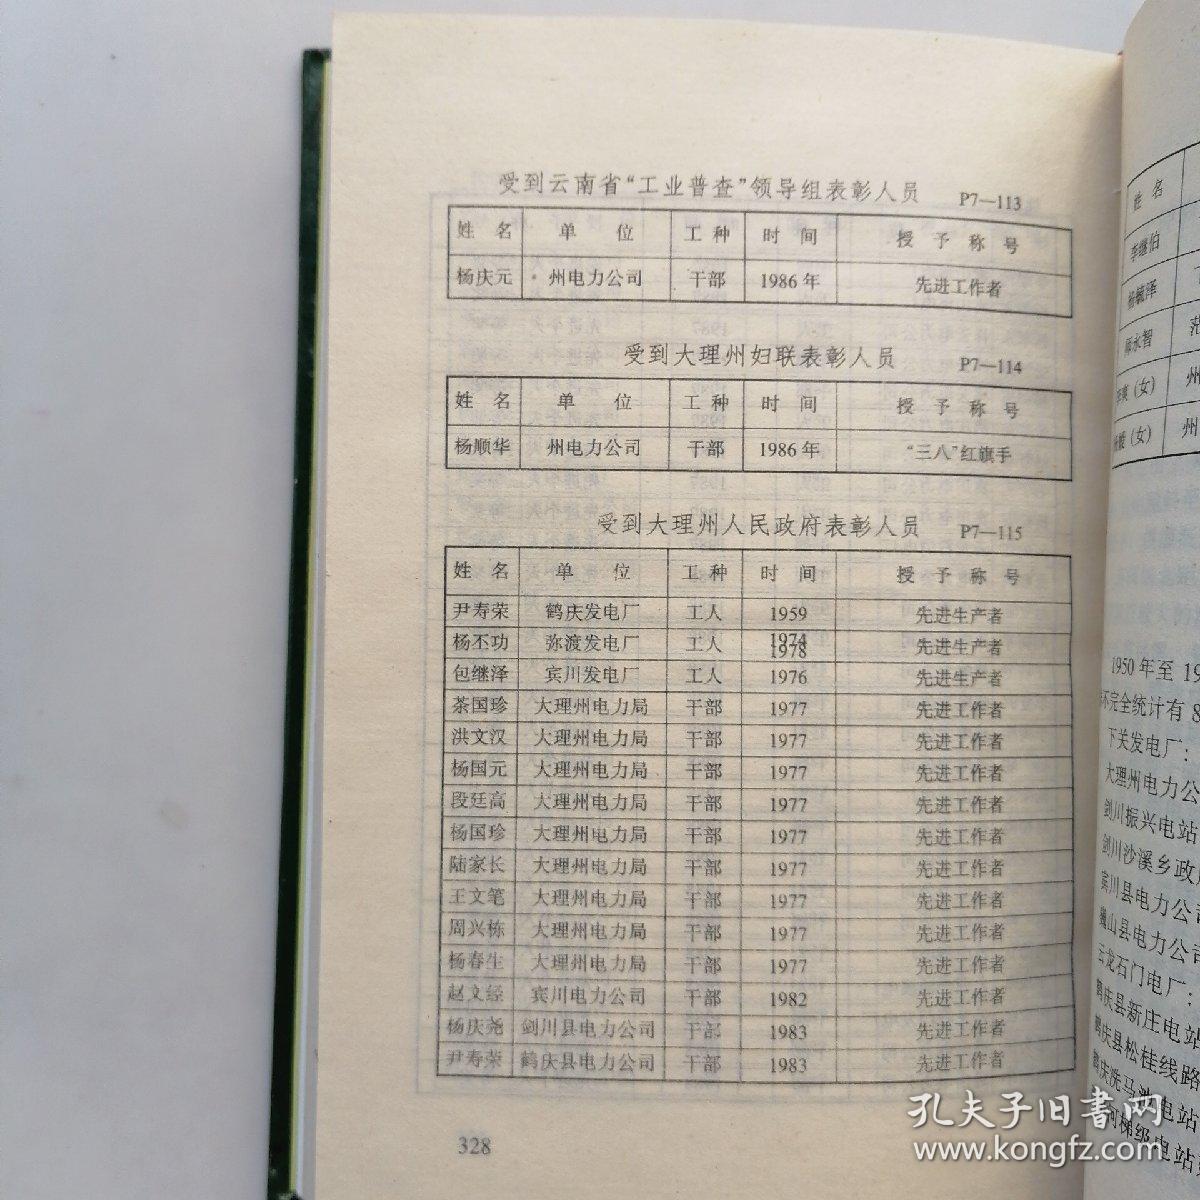 受到云南省“工业普查”领导组表彰人员 P7—113
姓 名 单 位 工 种 时 间 授 予 称 号
杨庆元 州电力公司 干部 1986年 先进工作者
受到大理州妇联表彰人员 P7—114
姓 名 单 位 工 种 时 间 授 予 称 号
杨顺华 州电力公司 干部 1986年 “三八”红旗手
受到大理州人民政府表彰人员 P7—115
姓 名 单 位 工 种 时 间 授 予 称 号
尹寿荣 鹤庆发电厂 工人 1959 先进生产者
杨丕功 弥渡发电厂 工人 1974 1978 先进生产者
包继泽 宾川发电厂 工人 1976 先进生产者
茶国珍 大理州电力局 干部 1977 先进工作者
洪文汉 大理州电力局 干部 1977 先进工作者
杨国元 大理州电力局 干部 1977 先进工作者
段廷高 大理州电力局 干部 1977 先进工作者
杨国珍 大理州电力局 干部 1977 先进工作者
陆家长 大理州电力局 干部 1977 先进工作者
王文笔 大理州电力局 干部 1977 先进工作者
周兴栋 大理州电力局 干部 1977 先进工作者
杨春生 大理州电力局 干部 1977 先进工作者
赵文经 宾川电力公司 干部 1982 先进工作者
杨庆尧 剑川县电力公司 干部 1983 先进工作者
尹寿荣 鹤庆县电力公司 干部 1983 先进工作者
328
姓 名
李继伯
杨毓泽
永智 茫
(女) 州
(女) 州
1950年至19
不完全统计有8
下关发电厂：
大理州电力公
剑川振兴电站
剑川沙溪乡政
宾川县电力公司
巍山县电力公司
云龙石门电厂：
鹤庆县新庄电站
鹤庆县松桂线路
鹤庆洗马池电站
河梯级电站
孔夫子旧书网
www.kongfz.com